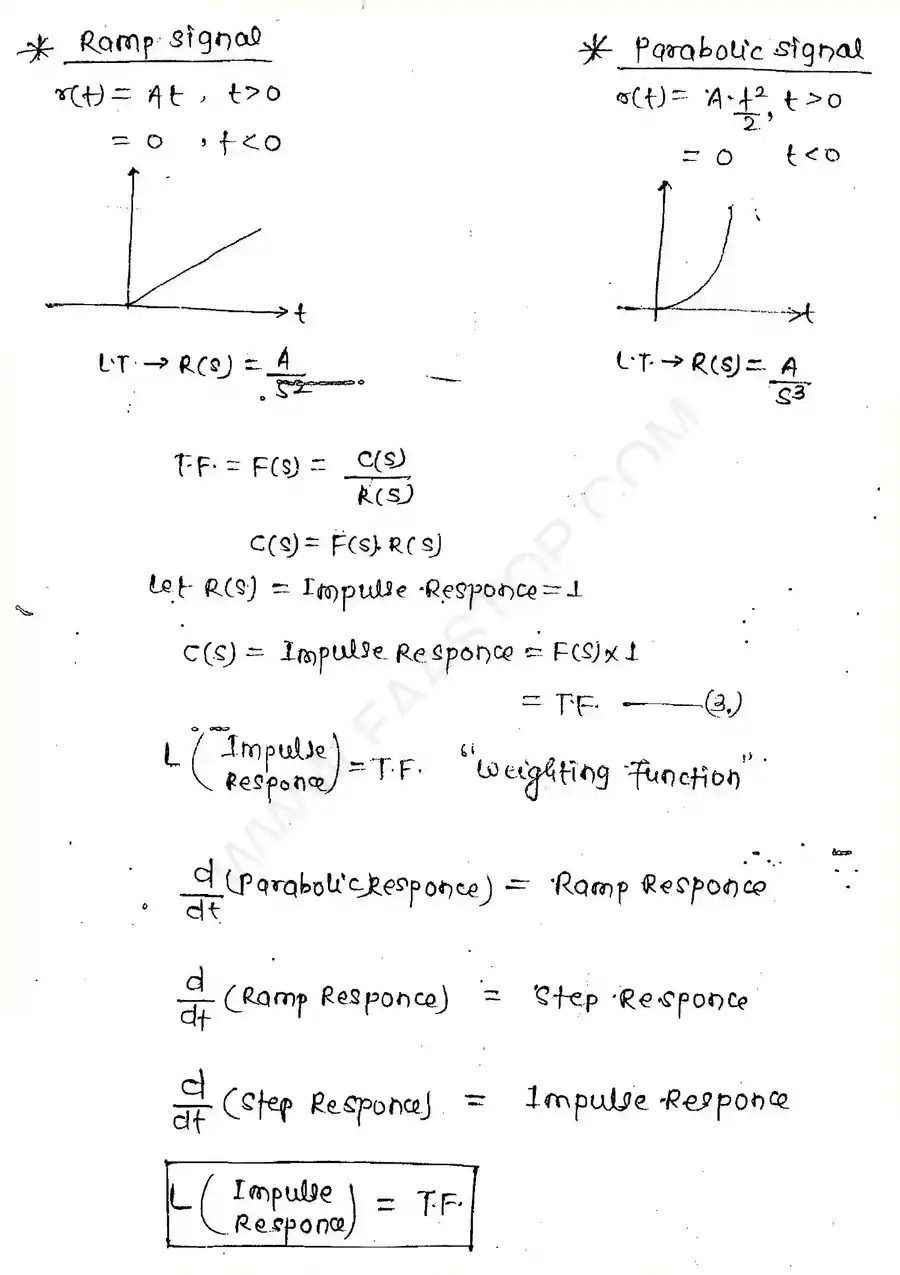 * Ramp signal
r(t) = At , t>0
= 0 , t<0
t
L.T → R(s) = A/s²
* Parabolic signal
r(t) = A·t²/2, t>0
= 0 t<0
t
L.T. → R(s) = A/s³
T.F. = F(s) = C(s)/R(s)
C(s) = F(s). R(s)
Let R(s) = Impulse Responce = 1
C(s) = Impulse Responce = F(s) x 1
= T.F. —— (3.)
L (Impulse Responce) = T.F. "Weighting function".
d/dt (Parabolic Responce) = Ramp Responce
d/dt (Ramp Responce) = Step Responce
d/dt (Step Responce) = Impulse Responce
L (Impulse Responce) = T.F.
WWW.FAASTOP.COM